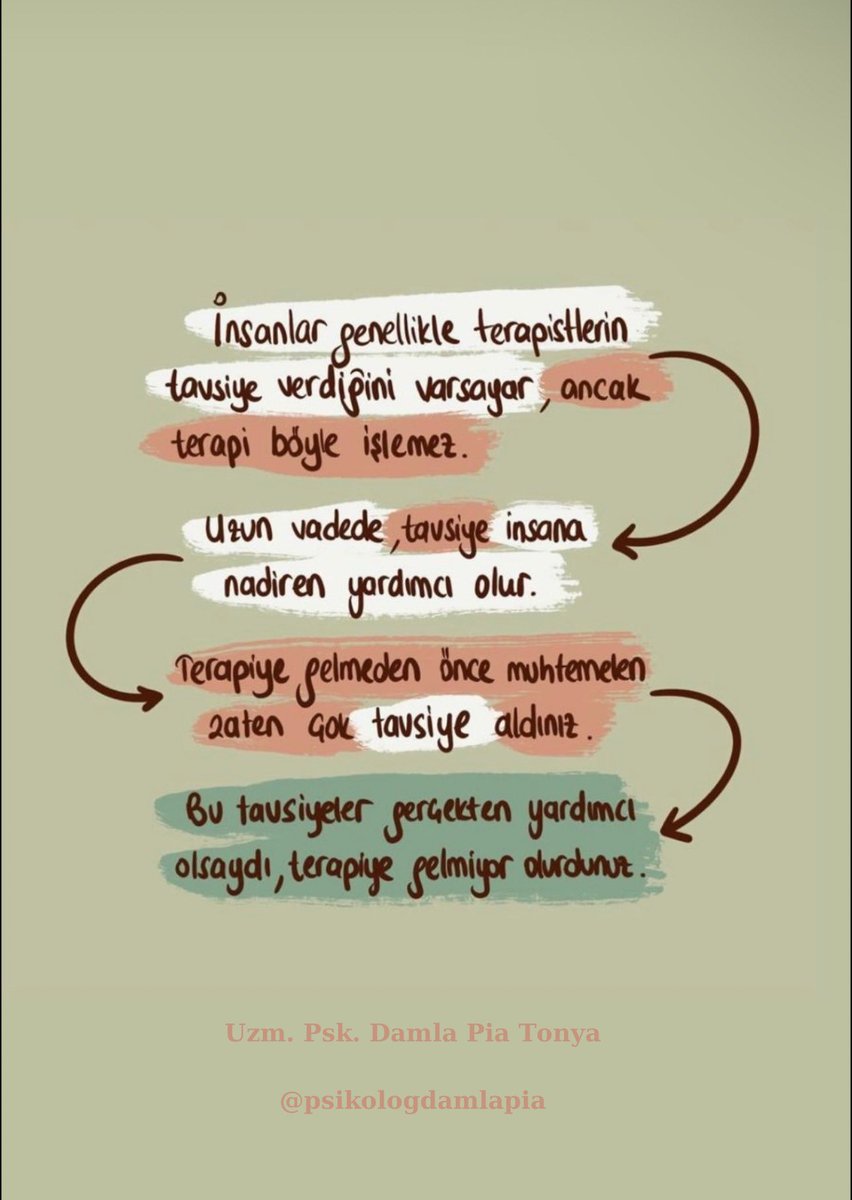 İnsanlar genellikle terapistlerin
tavsiye verdiğini varsayar, ancak
terapi böyle işlemez.
Uzun vadede, tavsiye insana
nadiren yardımcı olur.
Terapiye gelmeden önce muhtemelen
zaten çok tavsiye aldınız.
Bu tavsiyeler gerçekten yardımcı
olsaydı, terapiye gelmiyor olurdunuz.
Uzm. Psk. Damla Pia Tonya
@psikologdamlapia